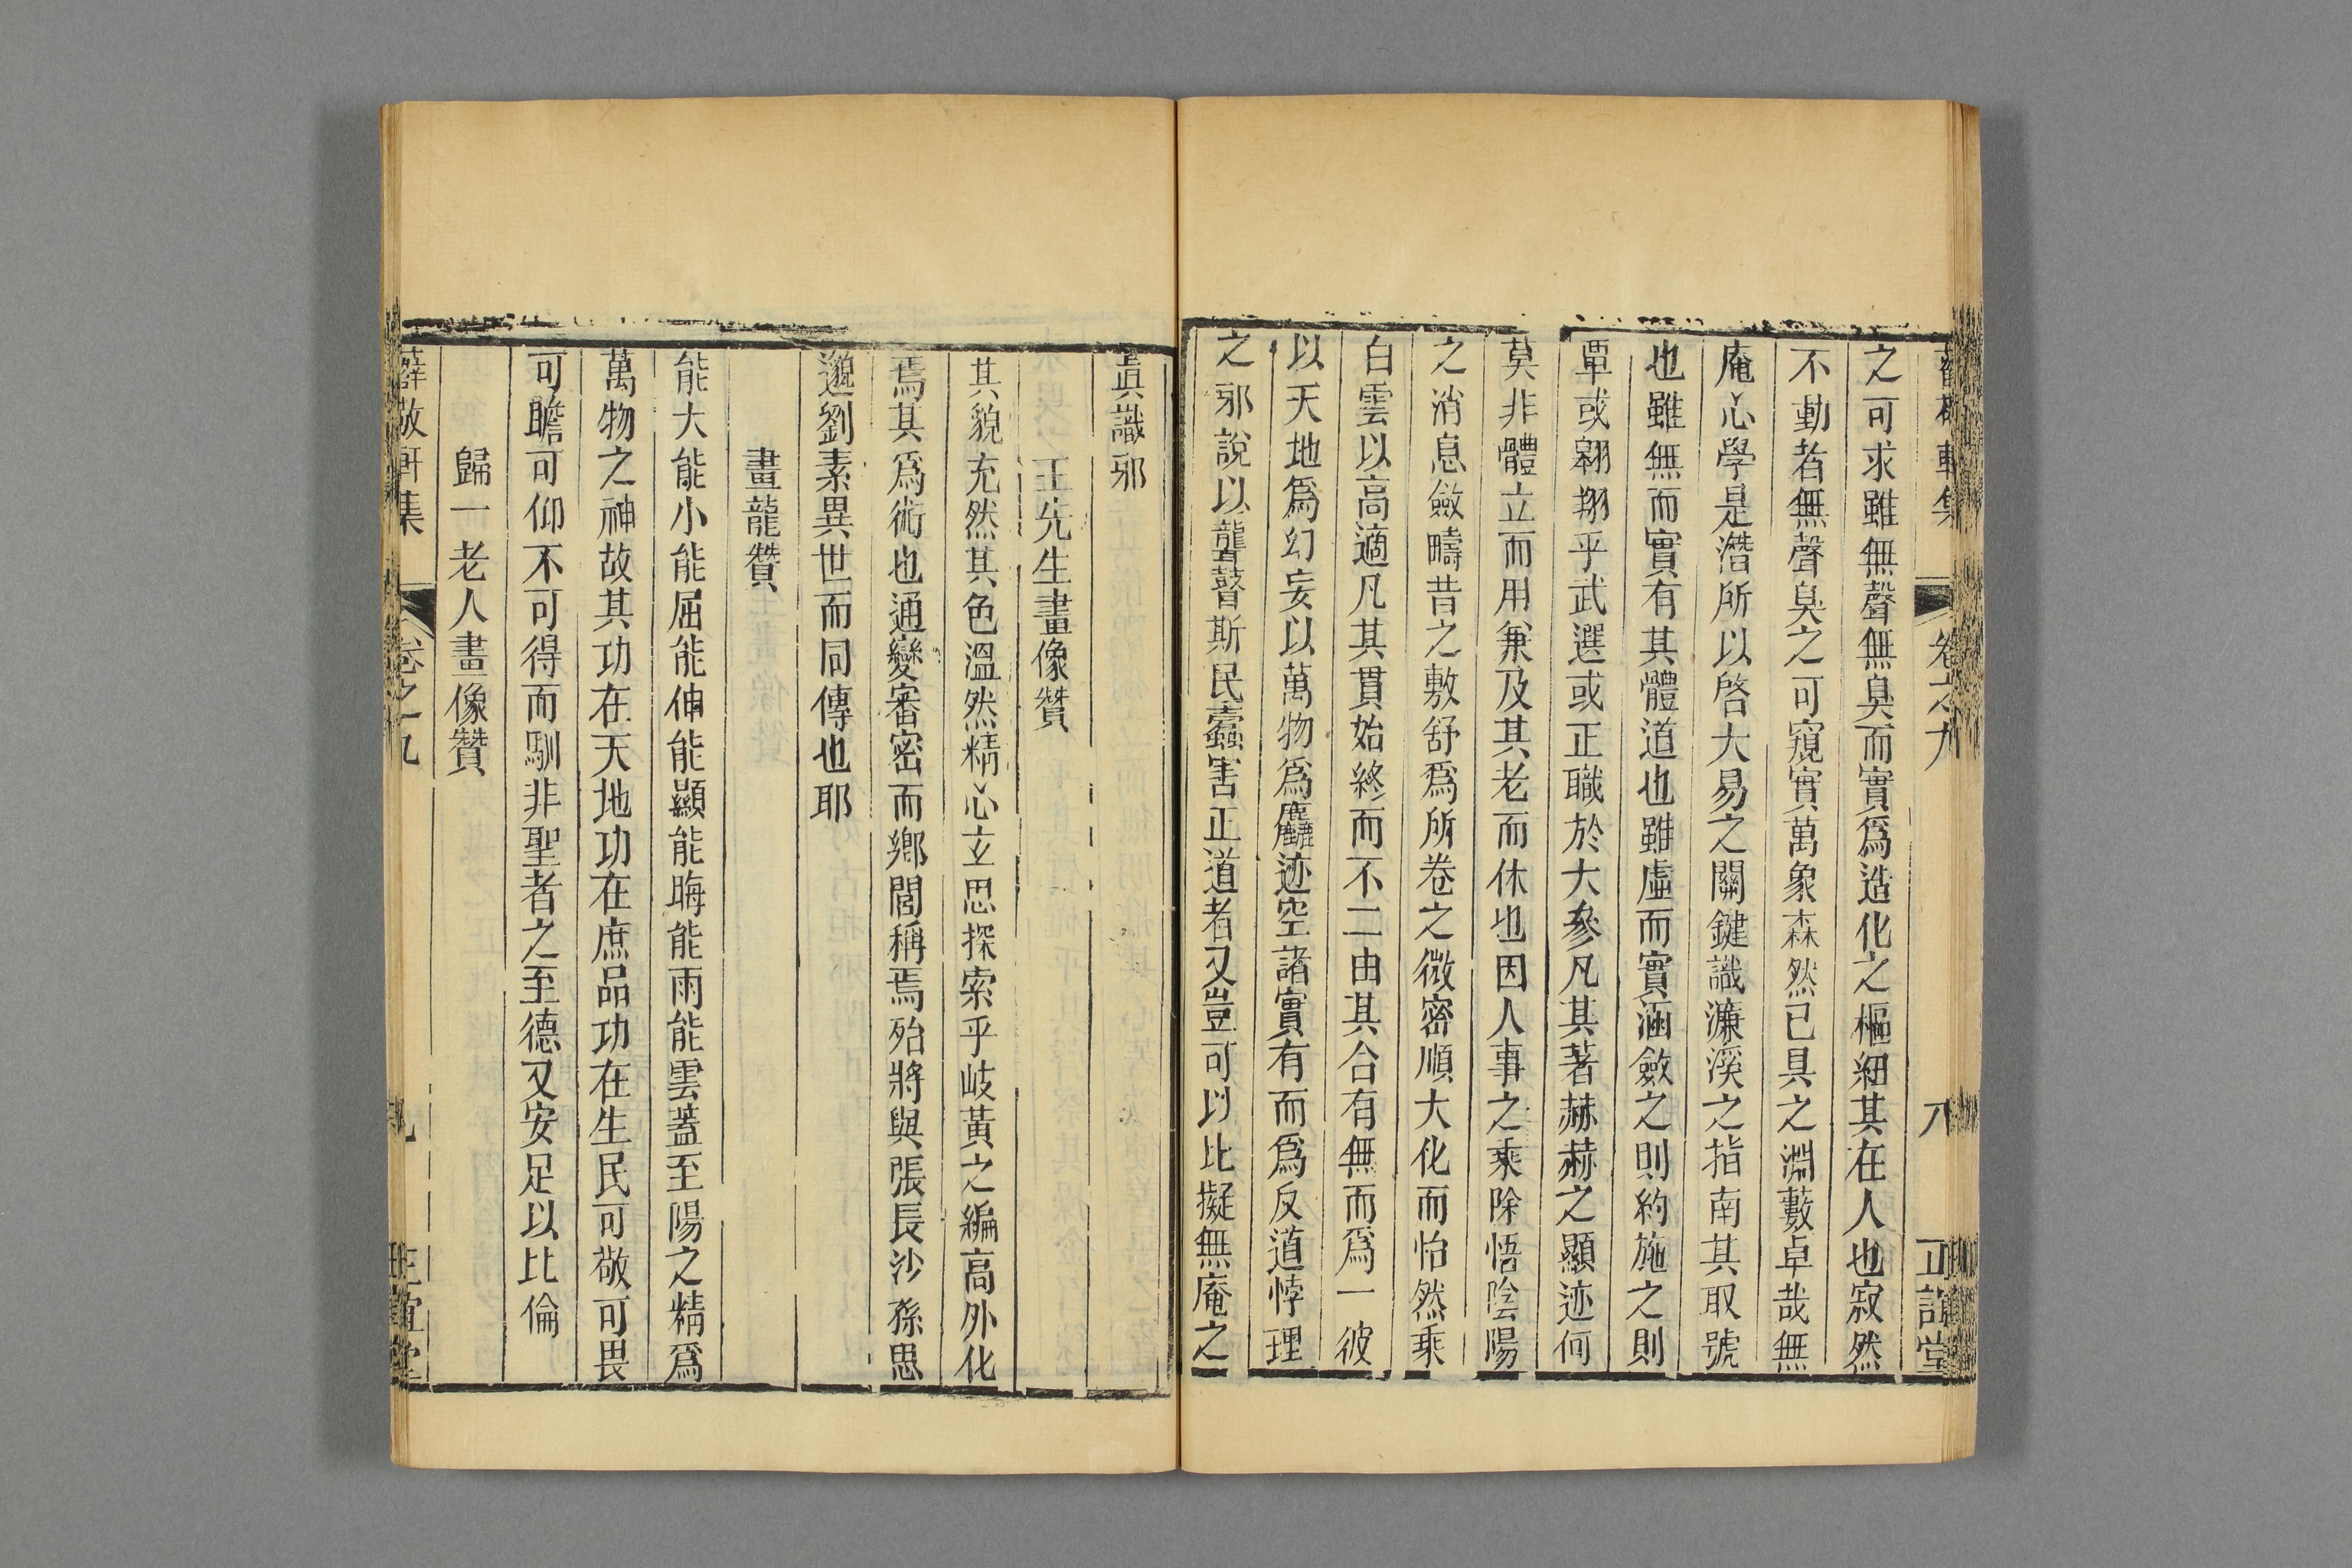 薛敬軒集 卷之九 八 正誼堂
之可求雖無聲無臭而實爲造化之樞細其在人也寂然
不動者無聲臭之可窺實萬象森然已具之淵藪卓哉無
庵心學是潛所以啓大易之關鍵識濂溪之指南其取號
也雖無而實有其體道也雖虛而實涵斂之則約施之則
覃或翱翔乎武選或正職於大參凡其著赫赫之顯迹何
莫非體立而用兼及其老而休也因人事之乘除悟陰陽
之消息斂疇昔之敷舒爲所卷之微密順大化而怡然乘
白雲以高適凡其貫始終而不二由其合有無而爲一彼
以天地爲幻妄以萬物爲麤迹空諸實有而爲反道悖理
之邪說以聾瞽斯民蠹害正道者又豈可以比擬無庵之
眞識邪
王先生畫像贊
其貌充然其色溫然精心玄思探索乎岐黃之編高外化
焉其爲術也通變審密而鄉閭稱焉殆將與張長沙孫思
邈劉素異世而同傳也耶
畫龍贊
能大能小能屈能伸能顯能晦能雨能雲蓋至陽之精爲
萬物之神故其功在天地功在庶品功在生民可敬可畏
可瞻可仰不可得而馴非聖者之至德又安足以比倫
歸一老人畫像贊
薛敬軒集 卷之九 九 正誼堂